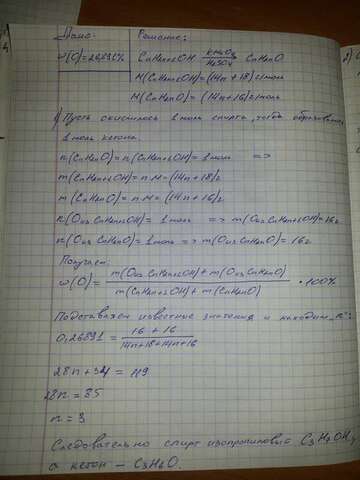 Дано:
Решение:
w(O)=26,891%
CnHn+2OH KMnO4 H2SO4 → CnHnO
M(CnHn+2OH)=(14n+18)г/моль
M(CnHnO)=(14n+16)г/моль
1) Пусть окислилось 1 моль спирта, тогда образовалось
1 моль кетона.
n(CnHnO)=n(CnHn+2OH)=1 моль =>
m(CnHn+2OH)=n·M=(14n+18)г
m(CnHnO)=n·M=(14n+16)г
n(O из CnHn+2OH)=1 моль => m(O из CnHn+2OH)=16г
n(O из CnHnO)=1 моль => m(O из CnHnO)=16г
Получаем:
w(O)= m(O из CnHn+2OH)+m(O из CnHnO) / m(CnHn+2OH)+m(CnHnO) ·100%
Подставляем известные значения и находим "n":
0,26891= 16+16 / 14n+18+14n+16
28n+34=119
28n=85
n=3
Следовательно спирт изопропиловый C3H7OH,
а кетон – C3H6O.